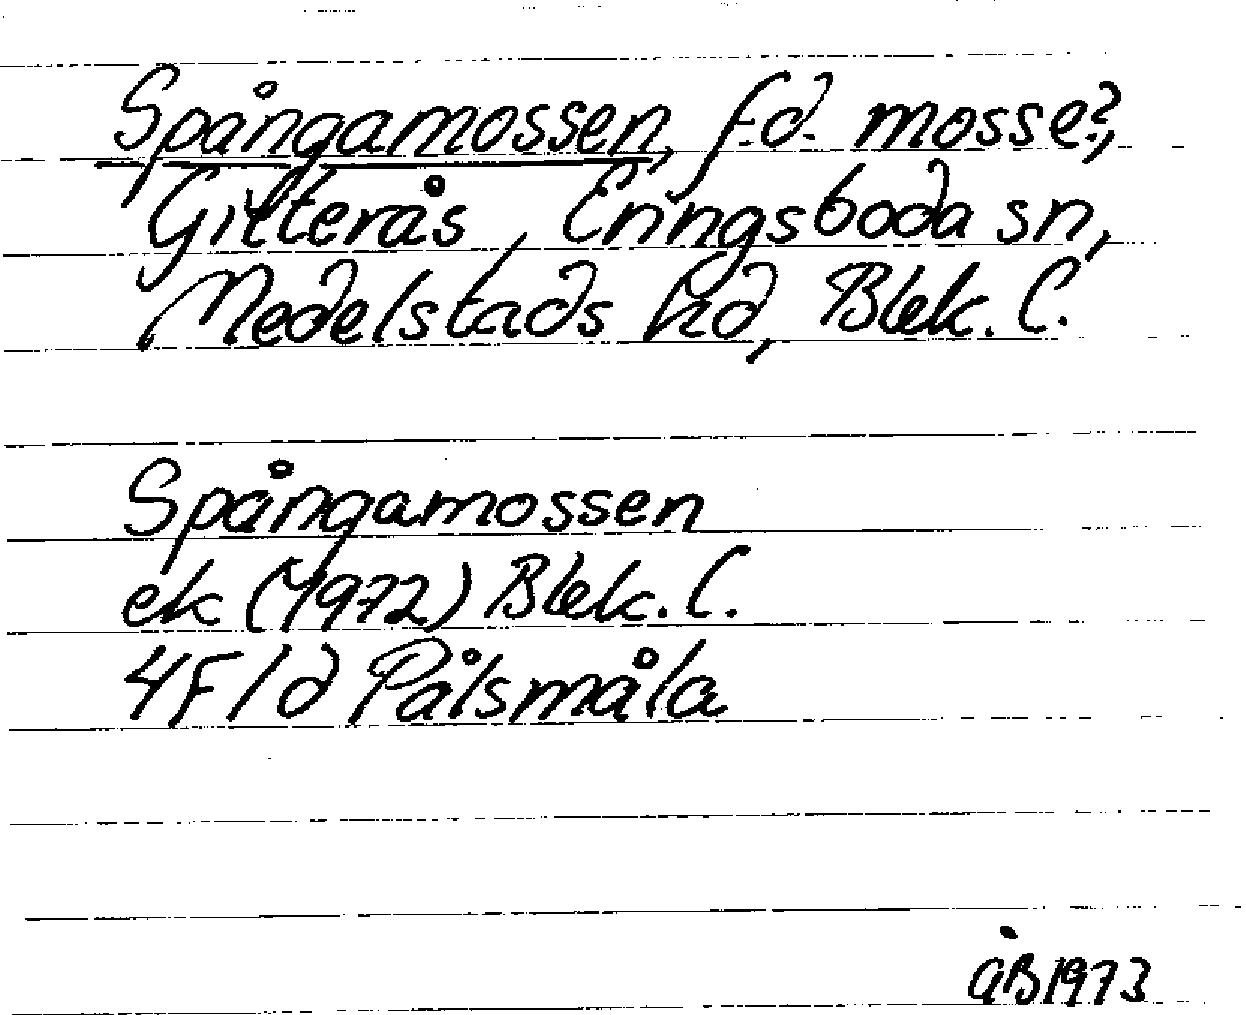 Spångamossen, f.d. mosse?,
Gilterås, Eringsboda sn,
Medelstads hd, Blek. l.
Spångamossen
ek (1972) Blek. l.
4F/d Pålsmåla
ÅB 1973